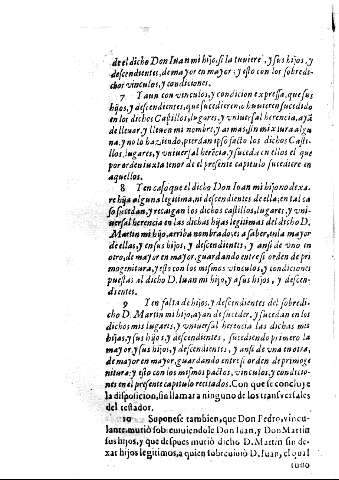 de el dicho Don Iuan mi hijo, si la tuviere, y sus hijos, y
descendientes, de mayor en mayor: y esto con los sobredi-
chos vinculos, y condiciones.
7 Y aun con vinculos, y condicion expressa, que sus
hijos, y descendientes, que sucedieren, o huvieren sucedido
en los dichos Castillos, lugares, y vniversal herencia, ayã
de llevar, y lleven mi nombre, y armas sin mixtura algu
na, y no lo haziendo, pierdan ipso facto los dichos Casti-
llos, lugares, y vniversal herēcia, y suceda en ellos el que
por orden iuxta tenor de el presente capitulo sucediere en
aquellos.
8 Y en caso que el dicho Don Iuan mi hijo no dexa-
re hija alguna legitima, ni descendientes de ella; en tal ca
so sucedan, y recaigan los dichos castillos, lugares, y vni-
versal herencia en las dichas hijas legitimas del dicho D.
Martin mi hijo, arriba nombrado; es a saber, en la mayor
de ellas, y en sus hijos, y descendientes, y ansi de vno en
otro, de mayor en mayor, guardando entre si orden de pri
mogenitura, y esto con los mismos vinculos, y condiciones
puestas al dicho D. Iuan mi hijo, y a sus hijos, y descen-
dientes.
9 Y en falta de hijos, y descendientes del sobredi-
cho D. Martin mi hijo, ayan de suceder, y sucedan en los
dichos mis lugares, y vniversal herencia las dichas mis
hijas, y sus hijos, y descendientes, sucediendo primero la
mayor, y sus hijos, y descendientes, y ansi de vna en otra,
de mayor en mayor, guardando entre si orden de primoge
nitura; y esto con los mismos pactos, vinculos, y condicio-
nes en el presente capitulo recitados. Con que se concluye
la disposicion, sin llamar a ninguno de los transversales
del testador.
10 Suponese tambien, que Don Pedro, vincu-
lante, murió sobreviviendole Don Iuan, y Don Martin
sus hijos, y que despues murió dicho D. Martin sin de-
xar hijos legitimos, a quien sobrevivió D. Iuan, el qual